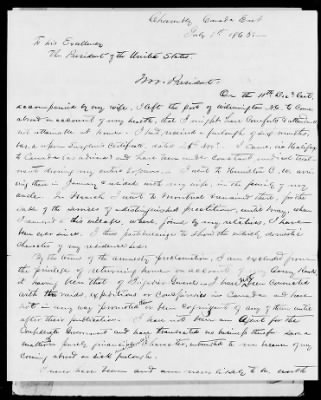 Chambly Canada East
July 1st 1865
To his Excellency
The President of the United States
Mr. President
On the 11th Dec last,
accompanied by my wife, I left the port of Wilmington N.C. to come
about on account of my health, that I might have comforts & attention
not attainable at home. I had received a furlough of six months,
upon Surgeon's Certificate, dated 21 Nov. I came, via Halifax
to Canada (as advised) and have been under constant medical treat-
ment during my entire sojourn. I went to Hamilton C.W. arri-
ving there in January & resided with my wife, in the family of my
uncle. In March I went to Montreal & remained there, for the
sake of the services of a distinguished practitioner, until May, when
I removed to this village, where, found by my relatives, I have
been ever since. I thus particularize to show the wholly domestic
character of my residence here.
By the terms of the amnesty proclamation, I am excluded from
the privilege of returning home on account of my Army Rank
it having been that of Brigadier General. I have not been connected
with the raids, expeditions or conspiracies in Canada and have
not in any way promoted or been cognizant of any of them until
after their publication. I have not been an Agent for the
Confederate Government and have transacted no business therefor save a
matter purely financial character, intrusted to me because of my
coming about on sick furlough.
I never have been and am never likely to be worth